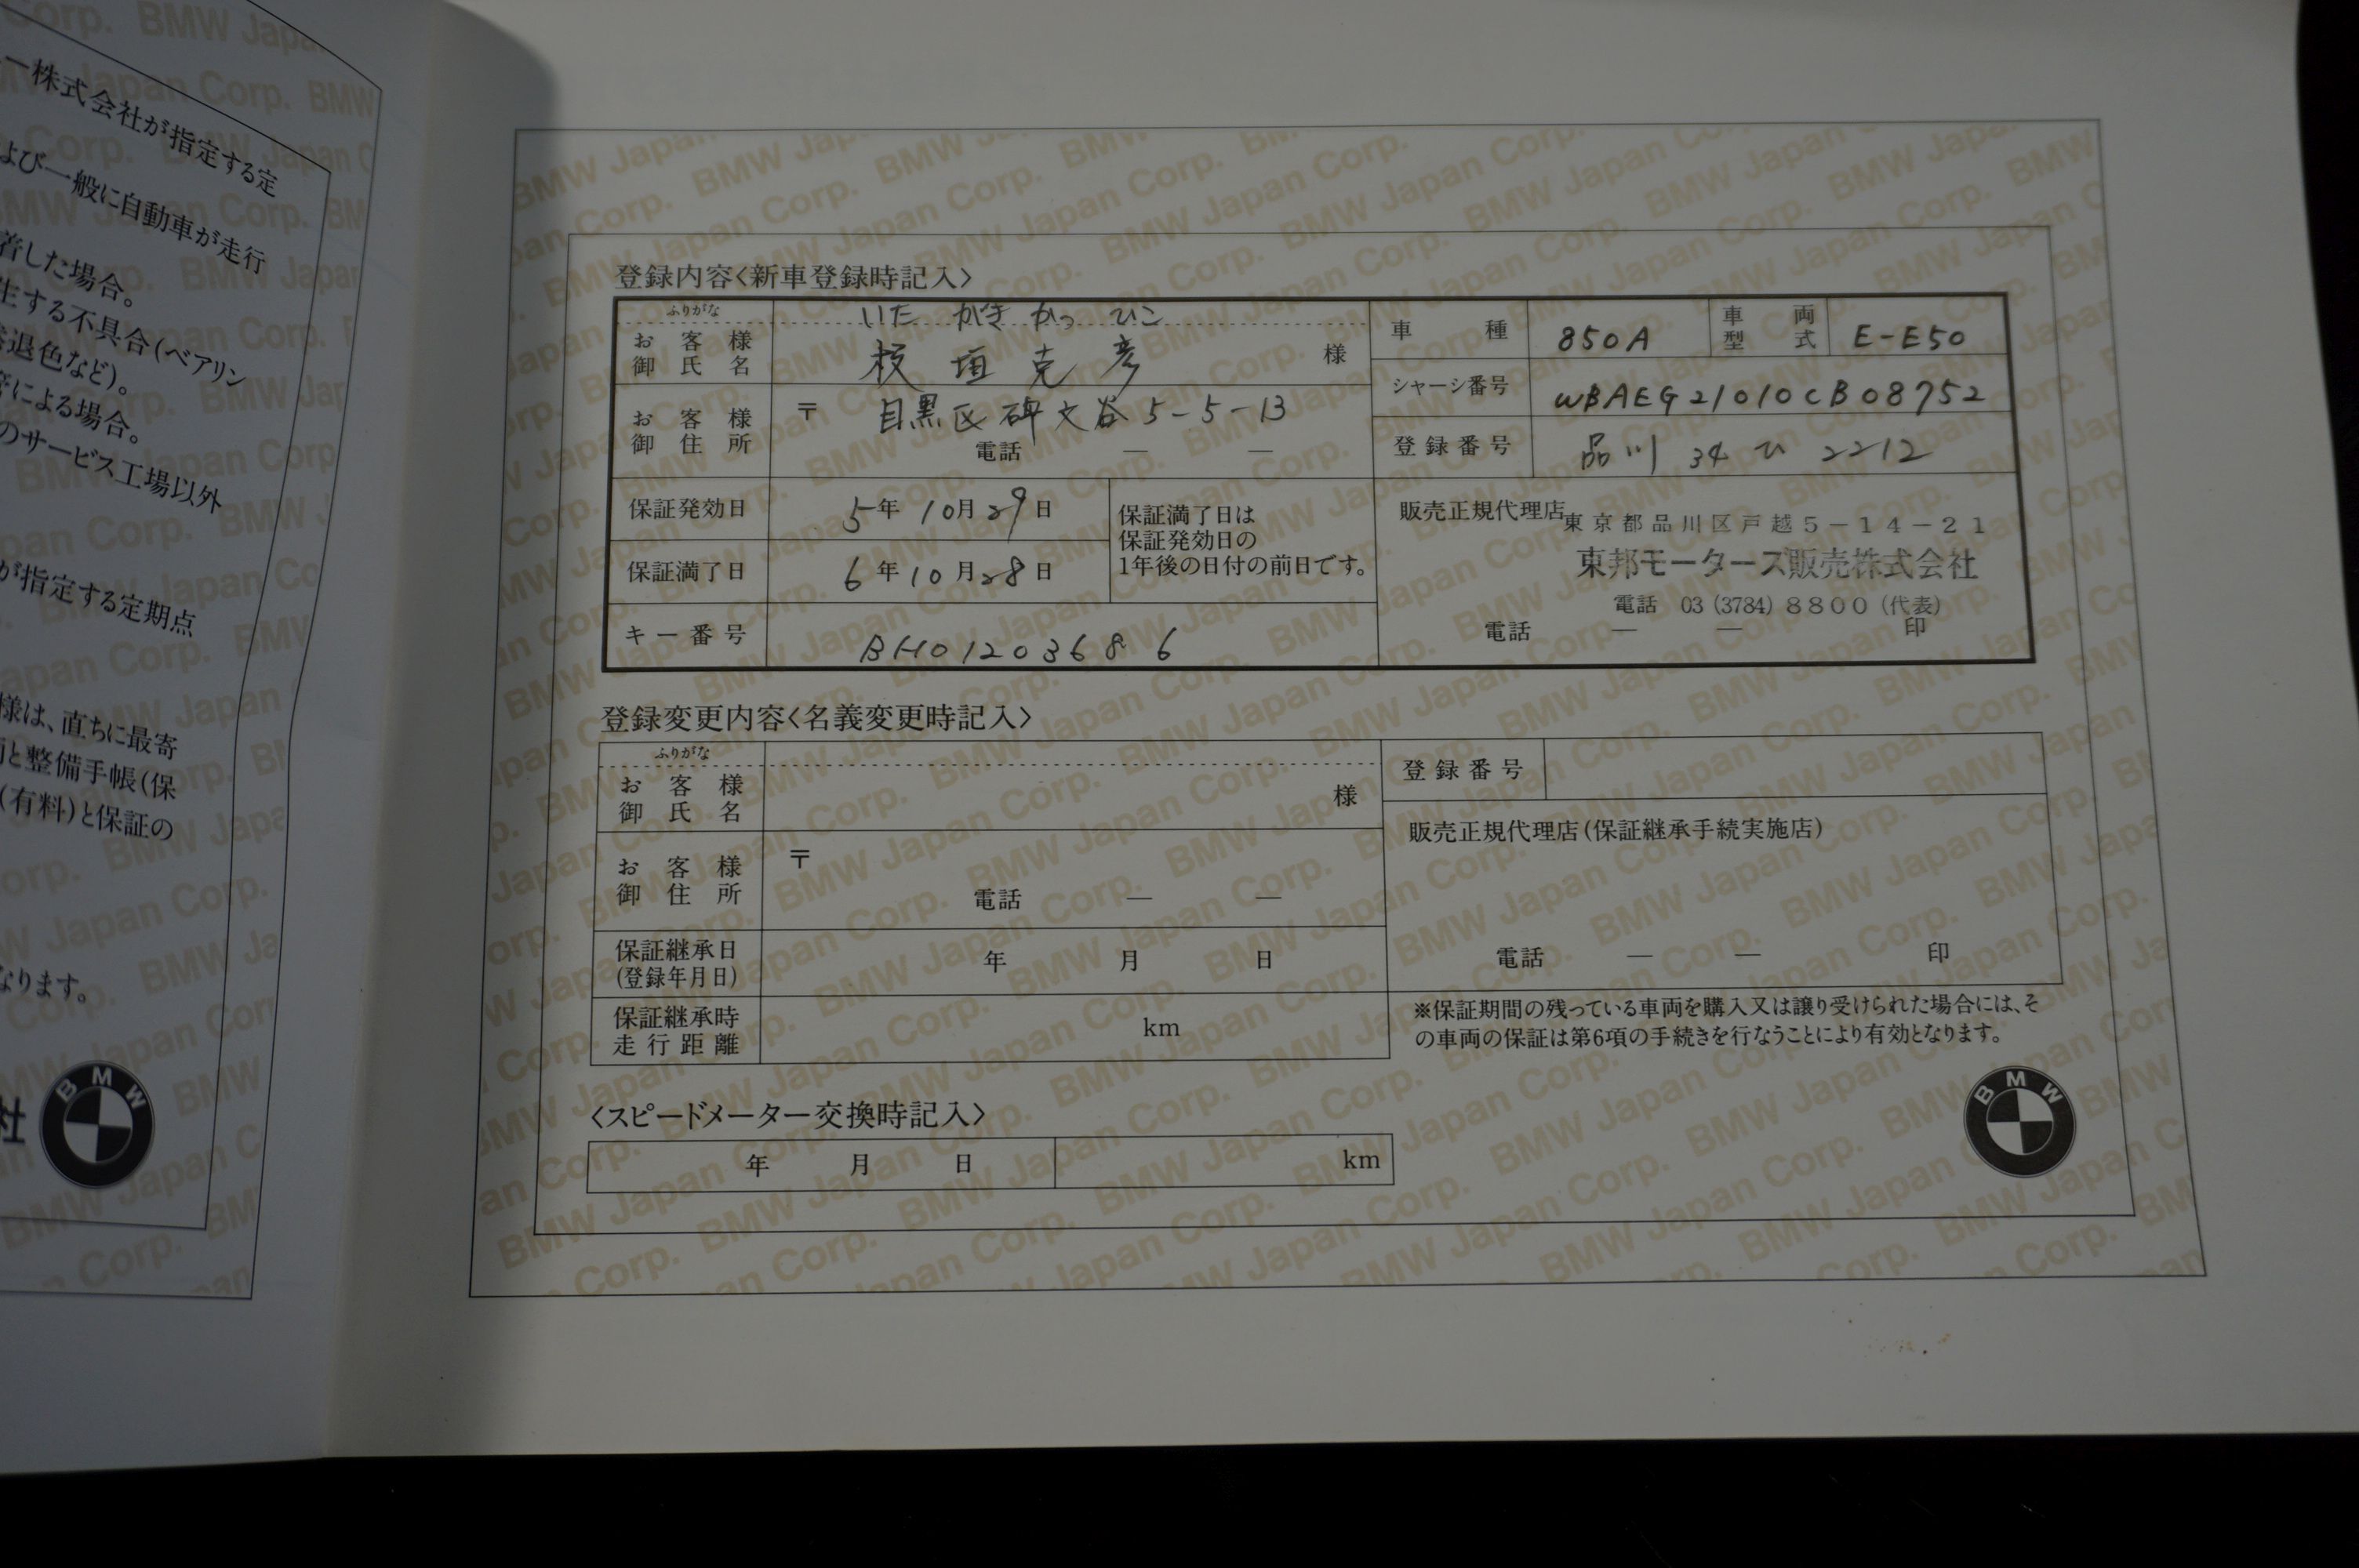 ー株式会社が指定する定
よび一般に自動車が走行
着した場合。
生する不具合(ベアリン
退色など)。
による場合。
のサービス工場以外
が指定する定期点
様は、直ちに最寄
と整備手帳(保
(有料)と保証の
なります。
社
BMW
登録内容〈新車登録時記入〉
ふりがな いた がき かつ ひこ
お客様御氏名 板垣克彦 様
お客様御住所 〒 目黒区碑文谷5-5-13
電話 ― ―
保証発効日 5年10月29日
保証満了日 6年10月28日
保証満了日は
保証発効日の
1年後の日付の前日です。
キー番号 BH01203686
車種 850A 車両型式 E-E50
シャーシ番号 WBAEG21010CB08752
登録番号 品川 34 ひ 2212
販売正規代理店
東京都品川区戸越5-14-21
東邦モータース販売株式会社
電話 03(3784)8800(代表)
電話 ― ― 印
登録変更内容〈名義変更時記入〉
ふりがな
お客様御氏名 様
お客様御住所 〒
電話 ― ―
保証継承日
(登録年月日) 年 月 日
保証継承時
走行距離 km
登録番号
販売正規代理店(保証継承手続実施店)
電話 ― ― 印
※保証期間の残っている車両を購入又は譲り受けられた場合には、そ
の車両の保証は第6項の手続きを行なうことにより有効となります。
〈スピードメーター交換時記入〉
年 月 日 km
BMW
BMW Japan Corp.